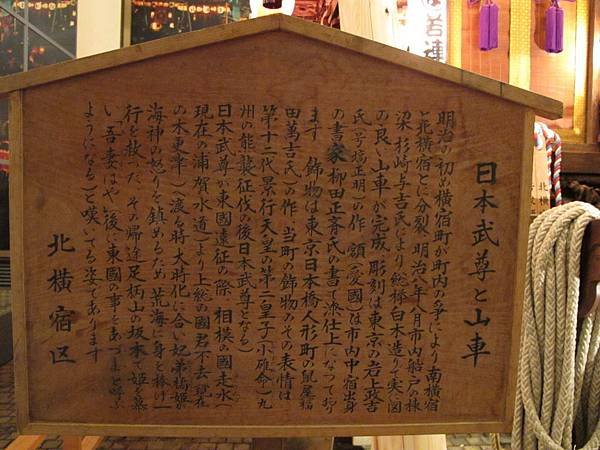 日本武尊と山車
明治の初め横宿町が町内の争により南横宿
と北横宿とに分裂、明治八年八月市内船戸の棟
梁杉崎与吉氏により総欅白木造り実に図
の良い山車が完成、彫刻は東京の岩上政吉
氏(号靖正明)の作、額(愛國)は市内中宿出身
の書家柳田正斎氏の書で漆仕上になっており
ます 飾物は東京日本橋人形町の鼠屋福
田萬吉氏の作 当町の飾物がその表情は
第十二代景行天皇の第二皇子(小碓命)九
州の熊襲征伐の後日本武尊となる
日本武尊が東國遠征の際、相模の國走水(
現在の浦賀水道)より上総の國君不去(現在
の木更津)へ渡る時大時化に合い妃弟橘姫が
海神の怒りを鎮めるため荒海に身を捧げ一
行を救った その帰途足柄山の坂本で姫を慕
い、吾妻はや(後に東國の事をあづまと呼ぶ
ようになる)と嘆いてる姿であります
北横宿区
若連
北横